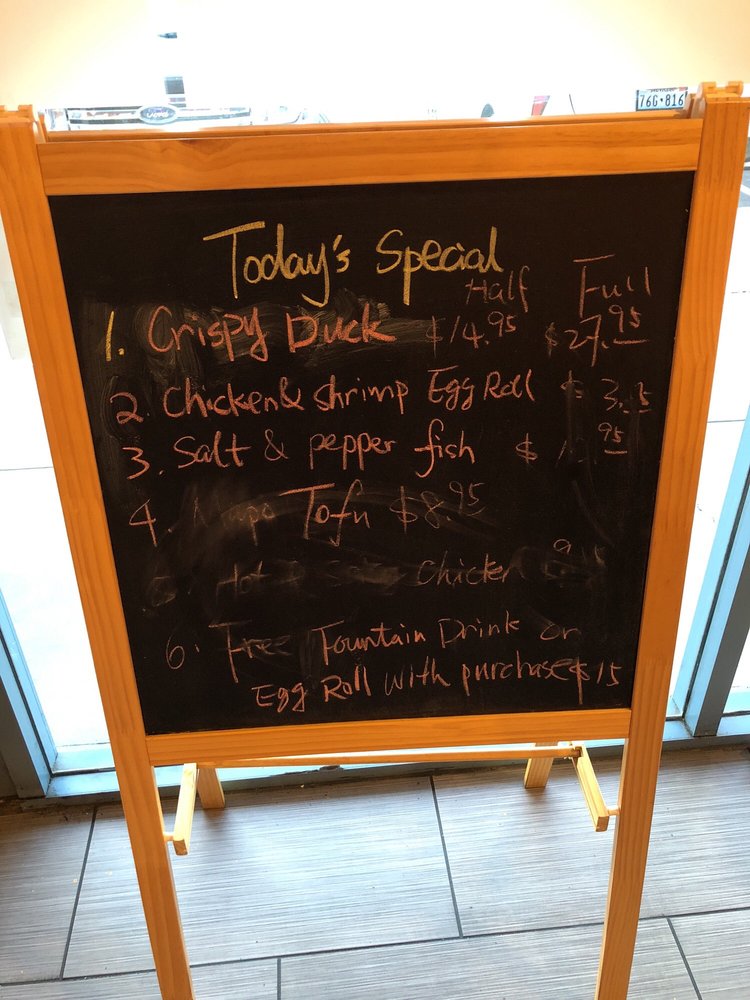 Ford
76G·816
Today's Special
Half Full
1. Crispy Duck $14.95 $27.95
2. Chicken & shrimp Egg Roll $
3. Salt & pepper fish $
4. Mapo Tofu $8.95
Hot Chicken
6. Free Fountain Drink or
Egg Roll with purchase $15